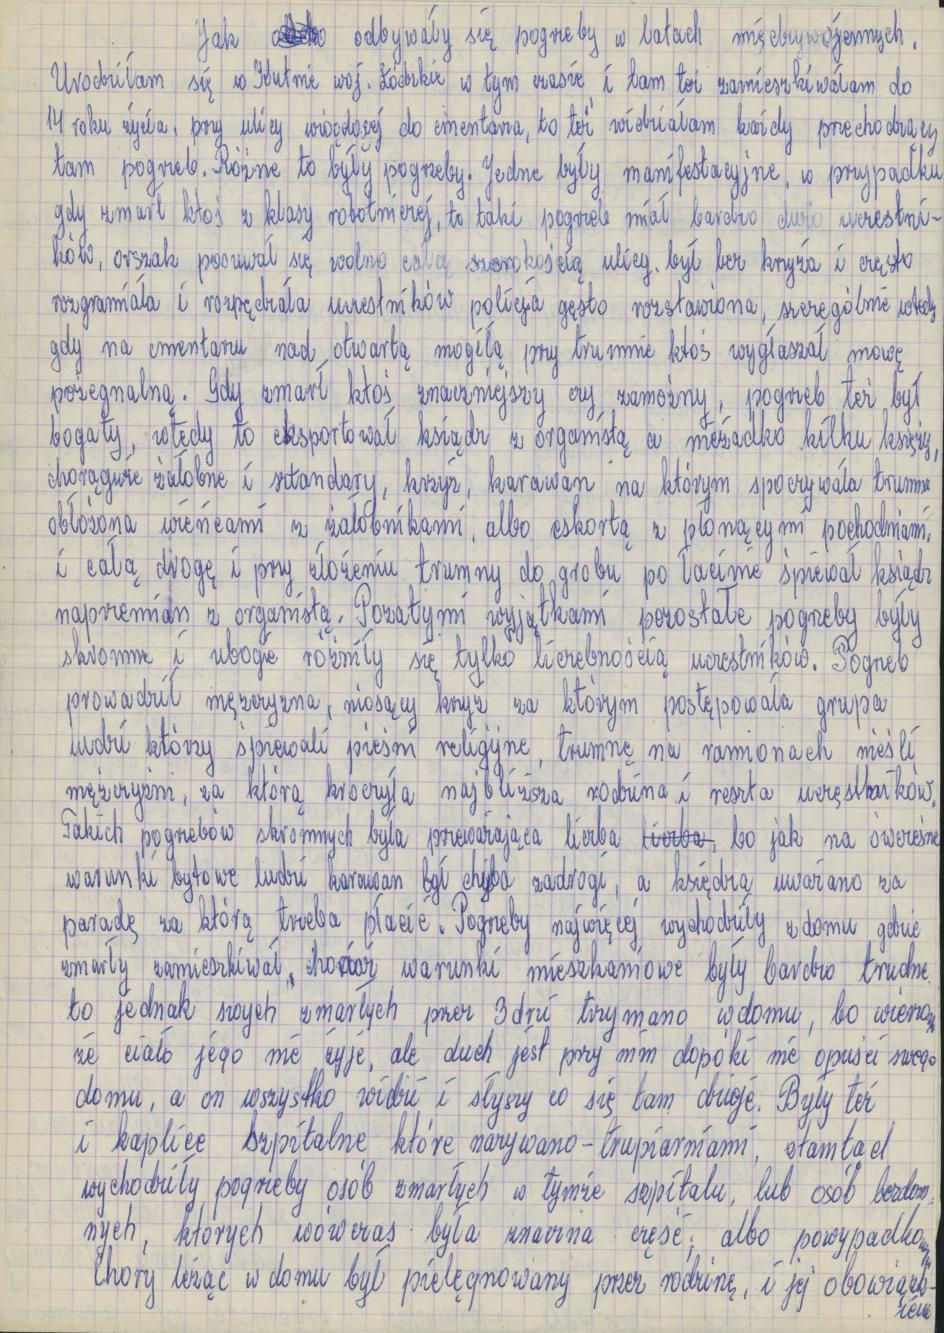 Jak odbywały się pogrzeby w latach międzywojennych.
Urodziłam się w Kutnie woj. Łódzkie w tym czasie i tam też zamieszkiwałam do
14 roku życia, przy ulicy wiodącej do cmentarza, to też widziałam każdy przechodzący
tam pogrzeb. Różne to były pogrzeby. Jedne były manifestacyjne, w przypadku
gdy zmarł ktoś z klasy robotniczej, to taki pogrzeb miał bardzo dużo uczestni-
ków, orszak posuwał się wolno całą szerokością ulicy. był bez krzyża i często
rozganiała i rozpędzała uczestników policja gęsto rozstawiona, szczególnie wtedy
gdy na cmentarzu nad otwartą mogiłą przy trumnie ktoś wygłaszał mowę
pożegnalną. Gdy zmarł ktoś znaczniejszy czy zamożny, pogrzeb też był
bogaty, wtedy to eksportował ksiądz z organistą a nierzadko kilku księży,
chorągwie żałobne i sztandary, krzyż, karawan na którym spoczywała trumna
obłożona wieńcami z żałobnikami, albo eskortą z płonącymi pochodniami,
i całą drogę i przy złożeniu trumny do grobu po łacinie śpiewał ksiądz
naprzemian z organistą. Pozatymi wyjątkami pozostałe pogrzeby były
skromne i ubogie różniły się tylko liczebnością uczestników. Pogrzeb
prowadził mężczyzna, niosący krzyż za którym postępowała grupa
ludzi którzy śpiewali pieśni religijne, trumnę na ramionach nieśli
mężczyźni, za którą kroczyła najbliższa rodzina i reszta uczęstników.
Takich pogrzebów skromnych była przeważająca liczba liczba, bo jak na ówczesne
warunki bytowe ludzi karawan był chyba zadrogi, a księdza uważano za
paradę za którą trzeba płacić. Pogrzeby najwięcej wychodziły z domu gdzie
zmarły zamieszkiwał, chociaż warunki mieszkaniowe były bardzo trudne
to jednak swych zmarłych przez 3 dni trzymano w domu, bo wierzono
że ciało jego nie żyje, ale duch jest przy nim dopóki nie opuści swego
domu, a on wszystko widzi i słyszy co się tam dzieje. Były też
i kaplice szpitalne które nazywano-trupiarniami, ztamtąd
wychodziły pogrzeby osób zmarłych w tymże szpitalu, lub osób bezdom-
nych, których wówczas była znaczna część; albo powypadkowych
Chory leżąc w domu był pielęgnowany przez rodzinę, i jej obowiązko-